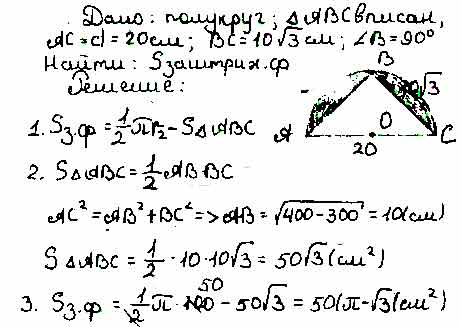 Дано: полукруг; △ABC вписан,
AC = d = 20 см; BC = 10√3 см; ∠B = 90°
Найти: Sзаштрих.ф
Решение:
B
10√3
A
O
C
20
1. Sз.ф = 1/2 πr² - S△ABC
2. S△ABC = 1/2 AB·BC
AC² = AB² + BC² => AB = √400-300 = 10(см)
S△ABC = 1/2 · 10 · 10√3 = 50√3 (см²)
50
3. Sз.ф = 1/2 π · 100 - 50√3 = 50(π-√3(см²)